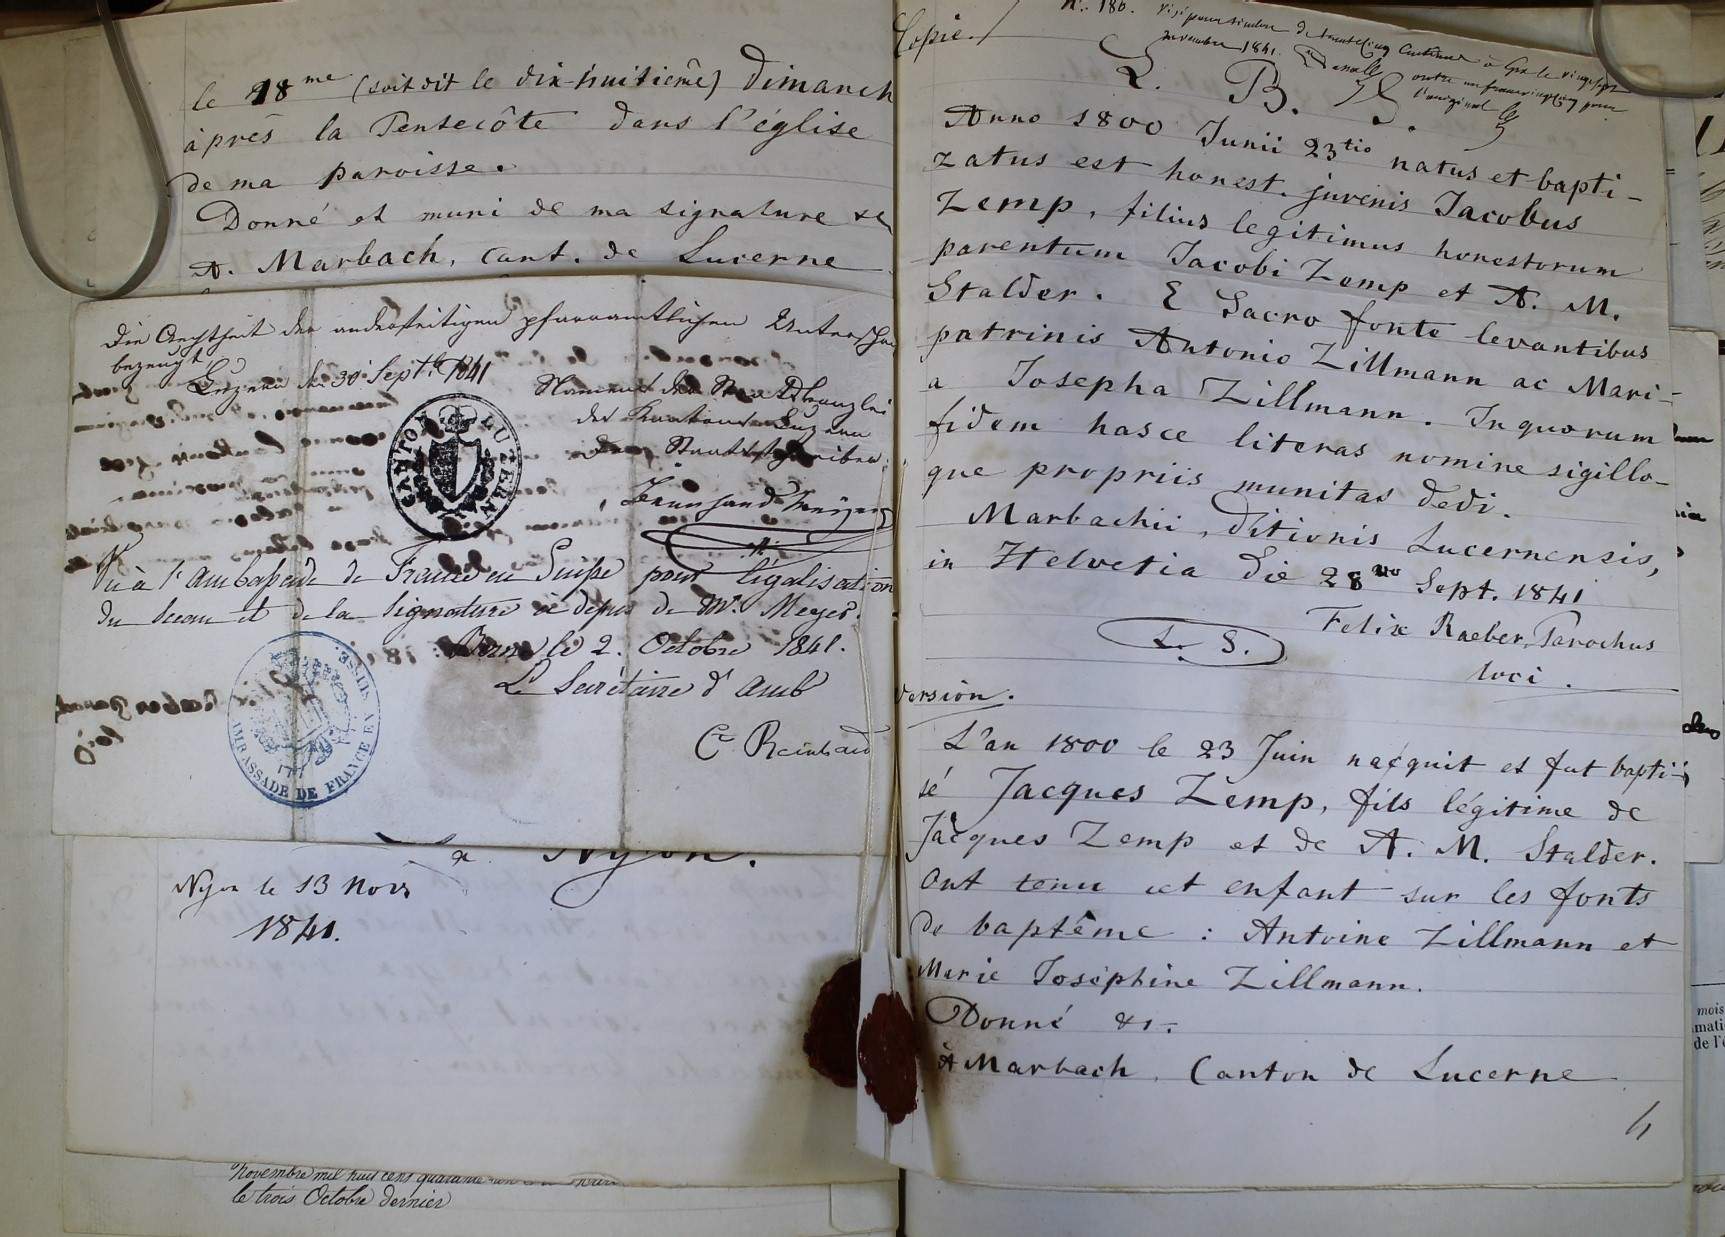 le 18me (soit dit le dix-huitième) Dimanch
après la Pentecôte dans l'église
de ma paroisse.
Donné et muni de ma signature &c
A. Marbach, cant. de Lucerne
Die Aechtheit der anderseitigen pfarramtlichen Unterschr
bezeugt
Luzern den 30 Septb 1841
Namens der Staatskanzlei
des Kantons Luzern
Der Staatsschreiber:
CANTON LUZERN
Vu à l'Ambassade de France en Suisse pour légalisation
du Sceau et de la Signature ci-dessus de Mr. Meyer.
Berne le 2. Octobre 1841.
Le Secrétaire d'Amb
AMBASSADE DE FRANCE EN SUISSE
à Nyon.
Nyon le 13 Novr
1841.
Novembre mil huit cent quarante un
le trois Octobre dernier
Copie.
N°. 180.
Visé pour timbre
novembre 1841.
L. B. S.
Anno 1800 Junii 23tio natus et bapti-
zatus est honest. juvenis Jacobus
Zemp, filius legitimus honestorum
parentum Jacobi Zemp et A. M.
Stalder. E Sacro fonte levantibus
patrinis Antonio Zillmann ac Mari-
a Josepha Zillmann. In quorum
fidem hasce literas nomine sigillo-
que propriis munitas dedi.
Marbachii, ditionis Lucernensis,
in Helvetia die 28vo Sept. 1841
Felix Raeber, Parochus
loci.
L. S.
Version.
L'an 1800 le 23 Juin nacquit et fut bapti-
sé Jacques Zemp, fils légitime de
Jacques Zemp et de A. M. Stalder.
Ont tenu cet enfant sur les fonts
de baptême : Antoine Zillmann et
Marie Joséphine Zillmann.
Donné &c.
A Marbach, Canton de Lucerne
mois
de l'